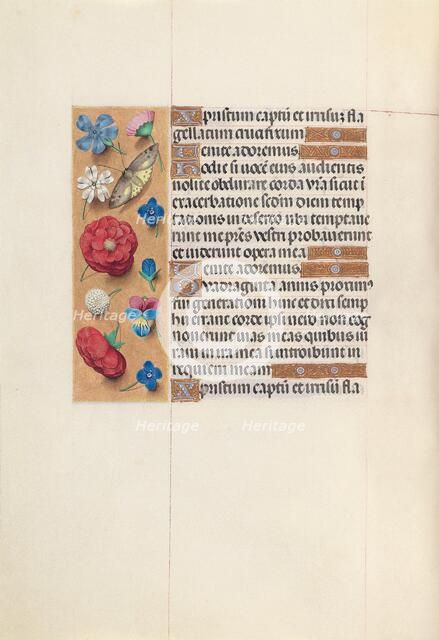 Xpristum captū et irrisuȝ fla
gellatum crucifixum
Venite adoremus.
Hodie si vocē eius audieritis
nolite obdurare corda vr̄a sicut i
exacerbatione scd̄m diem temp
tationis in deserto ubi temptave
runt me pr̄es vestri probaverunt
et viderunt opera mea
Venite adoremus.
Quadraginta annis proximꝰ
fui generationi huic et dixi semp
hii errant corde ipsi vero non cog
noverunt vias meas quibus iu
ravi in ira mea si introibunt in
requiem meam
Xpristum captū et irrisū fla
Heritage
Heritage
Heritage
Heritage